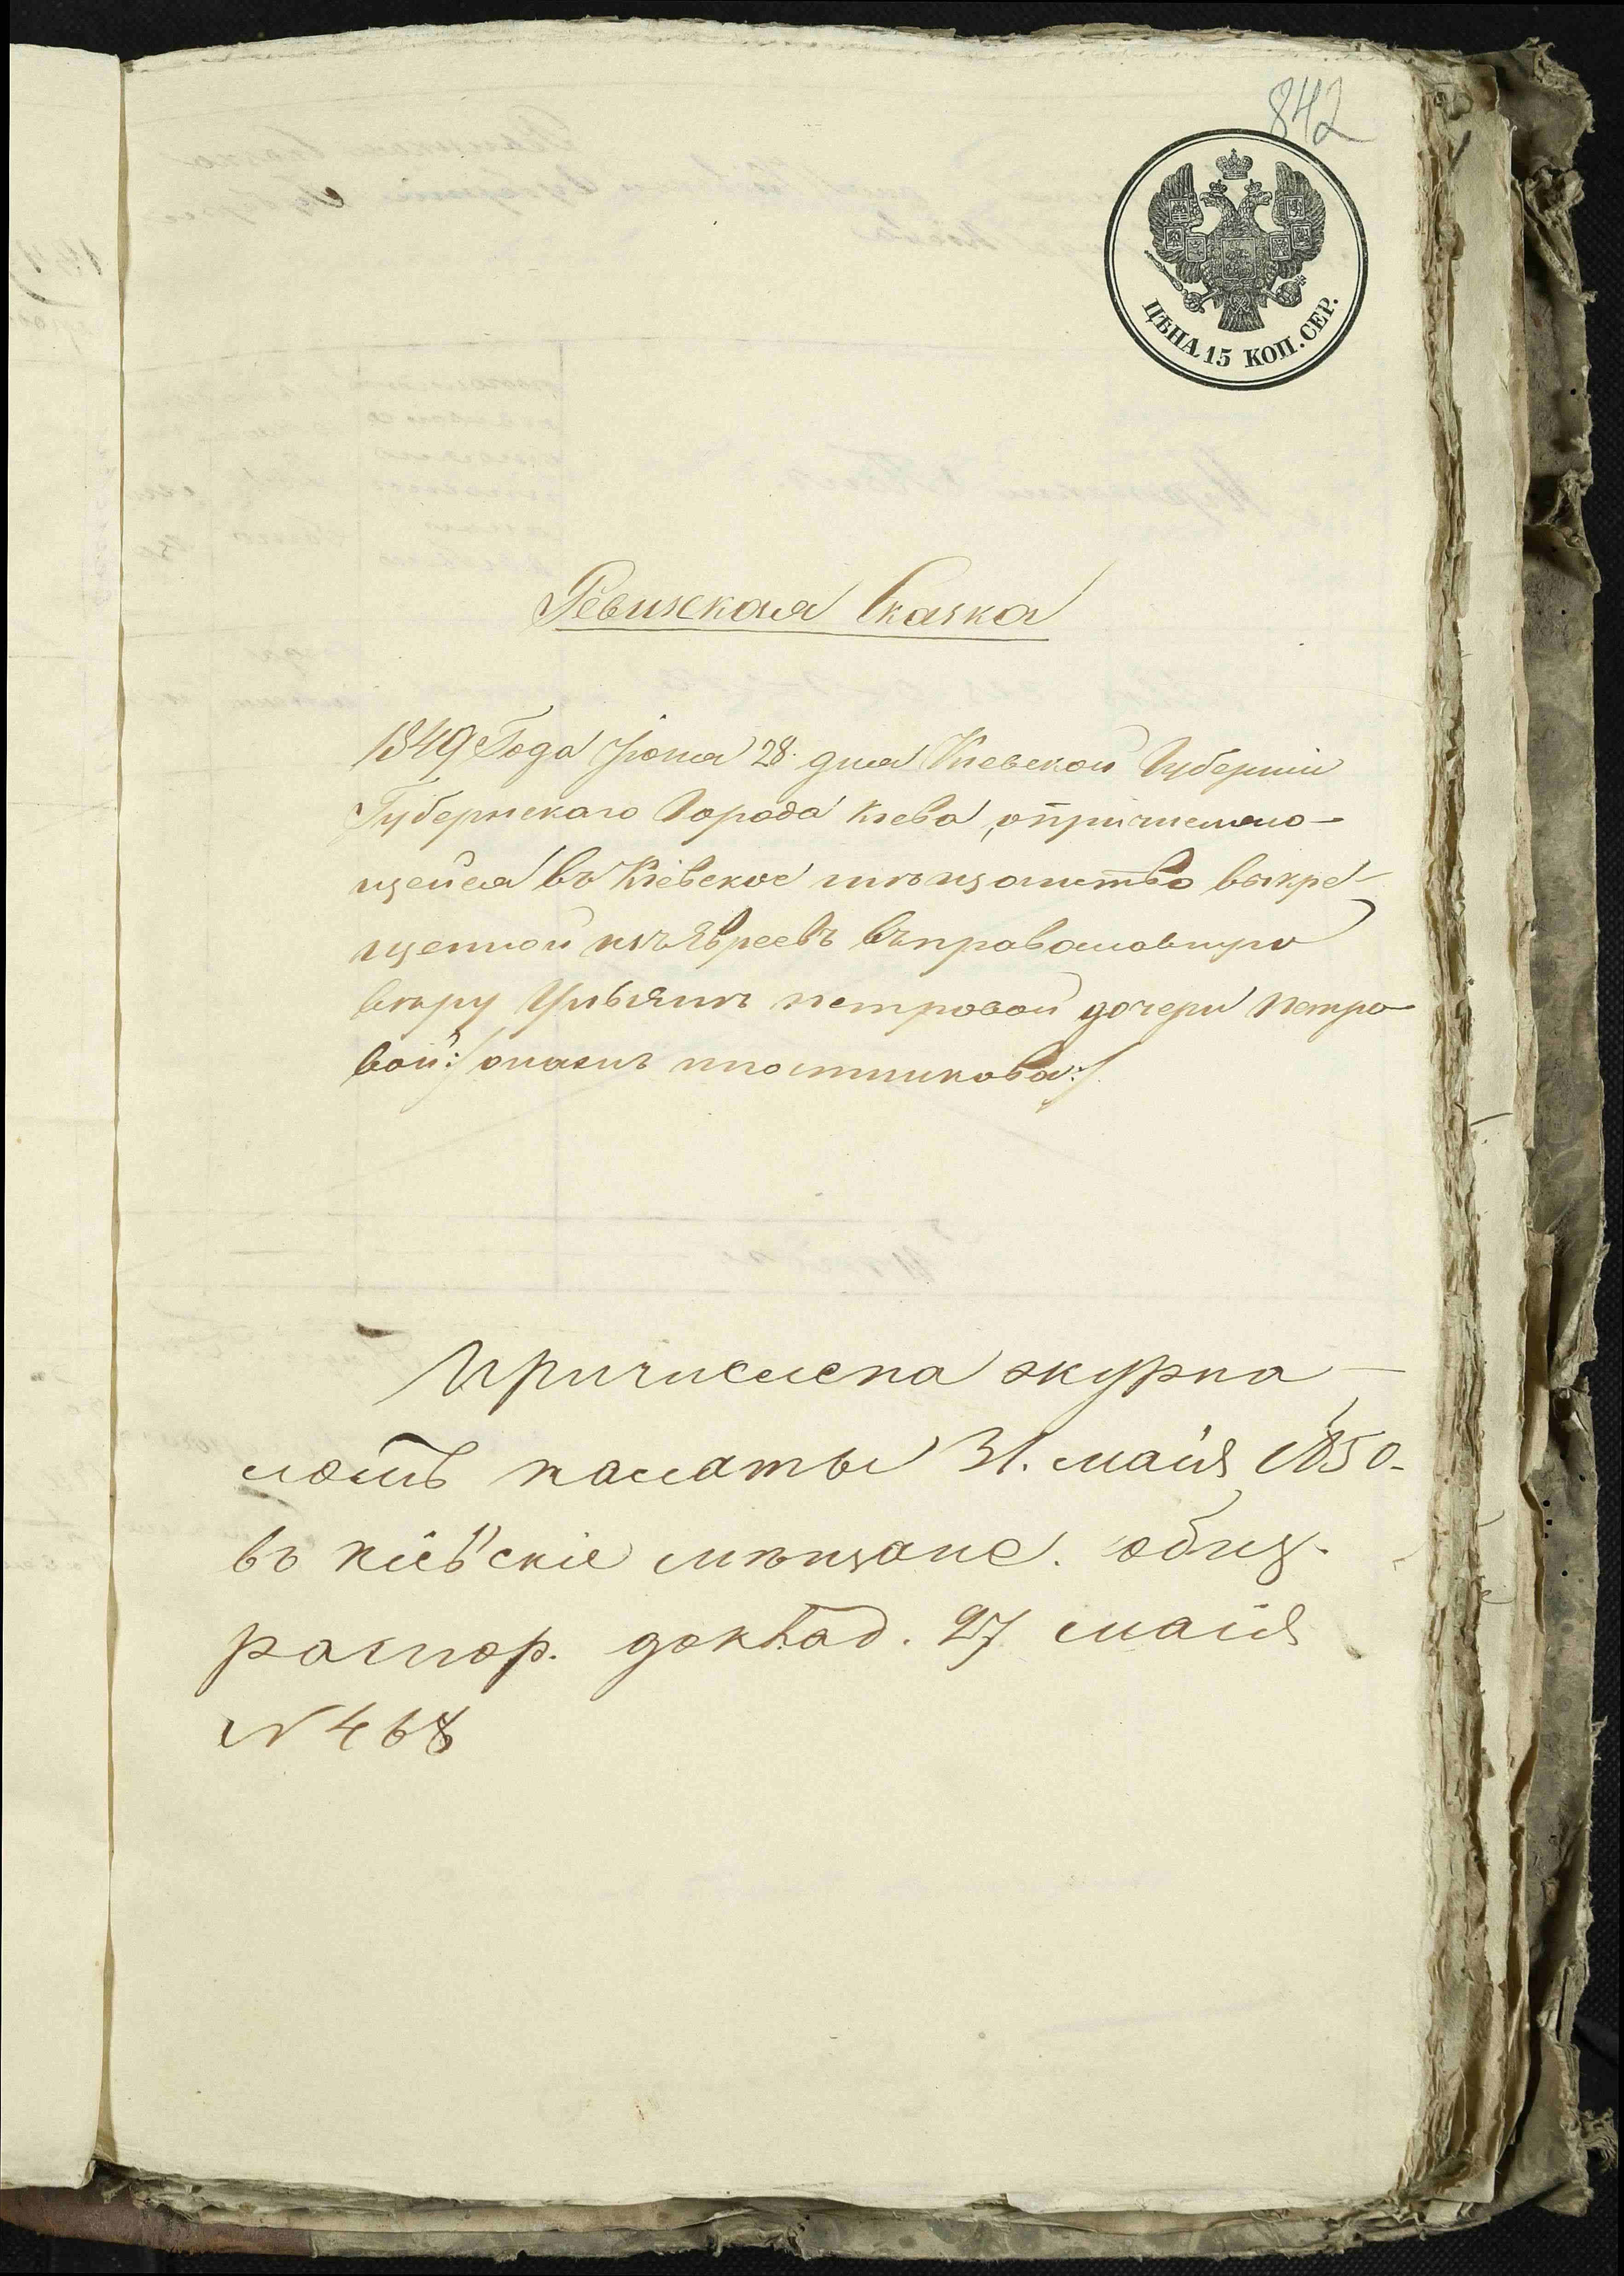 842
ЦѢНА 15 КОП. СЕР.
Ревизская Сказка
1849 Года Іюня 28 дня Кіевской Губерніи
Губернскаго Города Кіева, о причисляю-
щейся въ Кіевское мѣщанство выкре-
щенной изъ Евреевъ въ православную
вѣру Ульянѣ Петровой дочери Петро
вой :/ онаже Плотникова :/
Причислена журна-
ломъ палаты 31. маія 1850.
въ кіевскіе мѣщане. общ.
распор. доклад. 27 маія
N 468